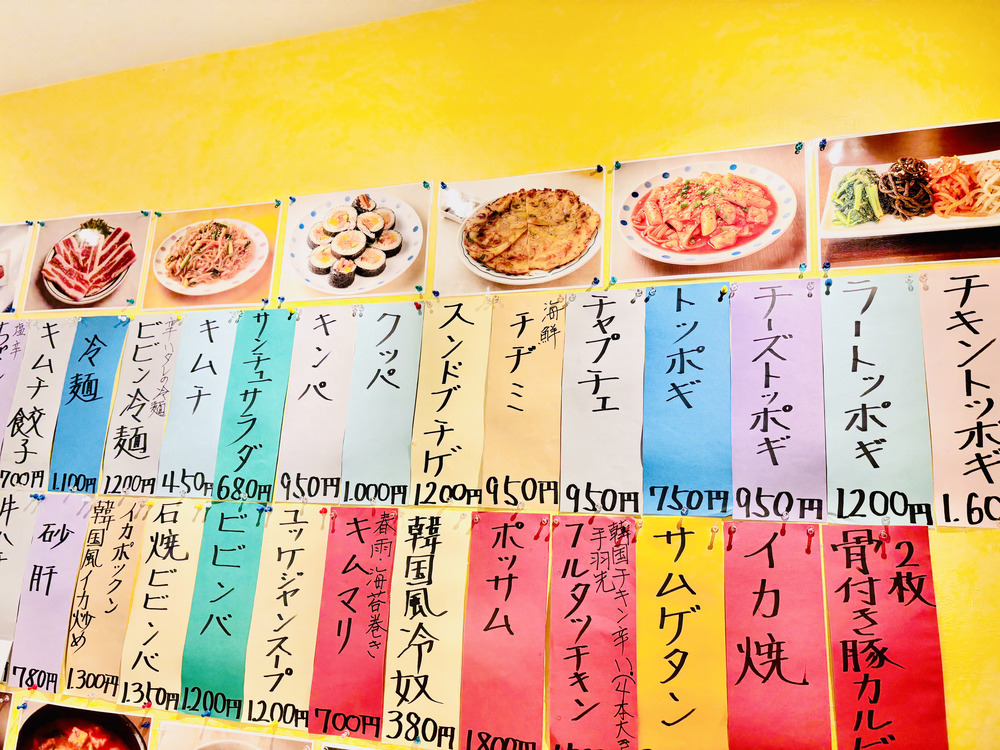 塩辛
キムチ餃子
700円
冷麺
1.100円
ビビン冷麺
辛いタレの冷麺
1200円
キムチ
450円
サンチュサラダ
680円
キンパ
950円
クッパ
1.000円
スンドブチゲ
1200円
海鮮
チヂミ
950円
チャプチェ
950円
トッポギ
750円
チーズトッポギ
950円
ラートッポギ
1200円
チキントッポギ
1.60
砂肝
780円
イカポックン
韓国風イカ炒め
1.300円
石焼ビビンバ
1.350円
ビビンバ
1200円
ユッケジャンスープ
1200円
春雨海苔巻き
キムマリ
700円
韓国風冷奴
380円
ポッサム
1800円
韓国チキン辛い(4本大き
手羽先
フルダッチキン
サムゲタン
イカ焼
2枚
骨付き豚カルビ